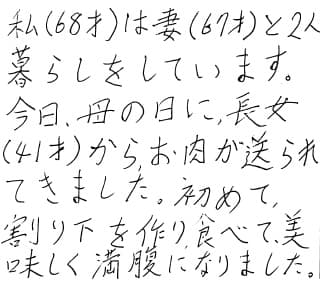 私(68才)は妻(67才)と2人
暮らしをしています。
今日、母の日に、長女
(41才)から、お肉が送られ
てきました。初めて、
割り下を作り、食べて、美
味しく満腹になりました。